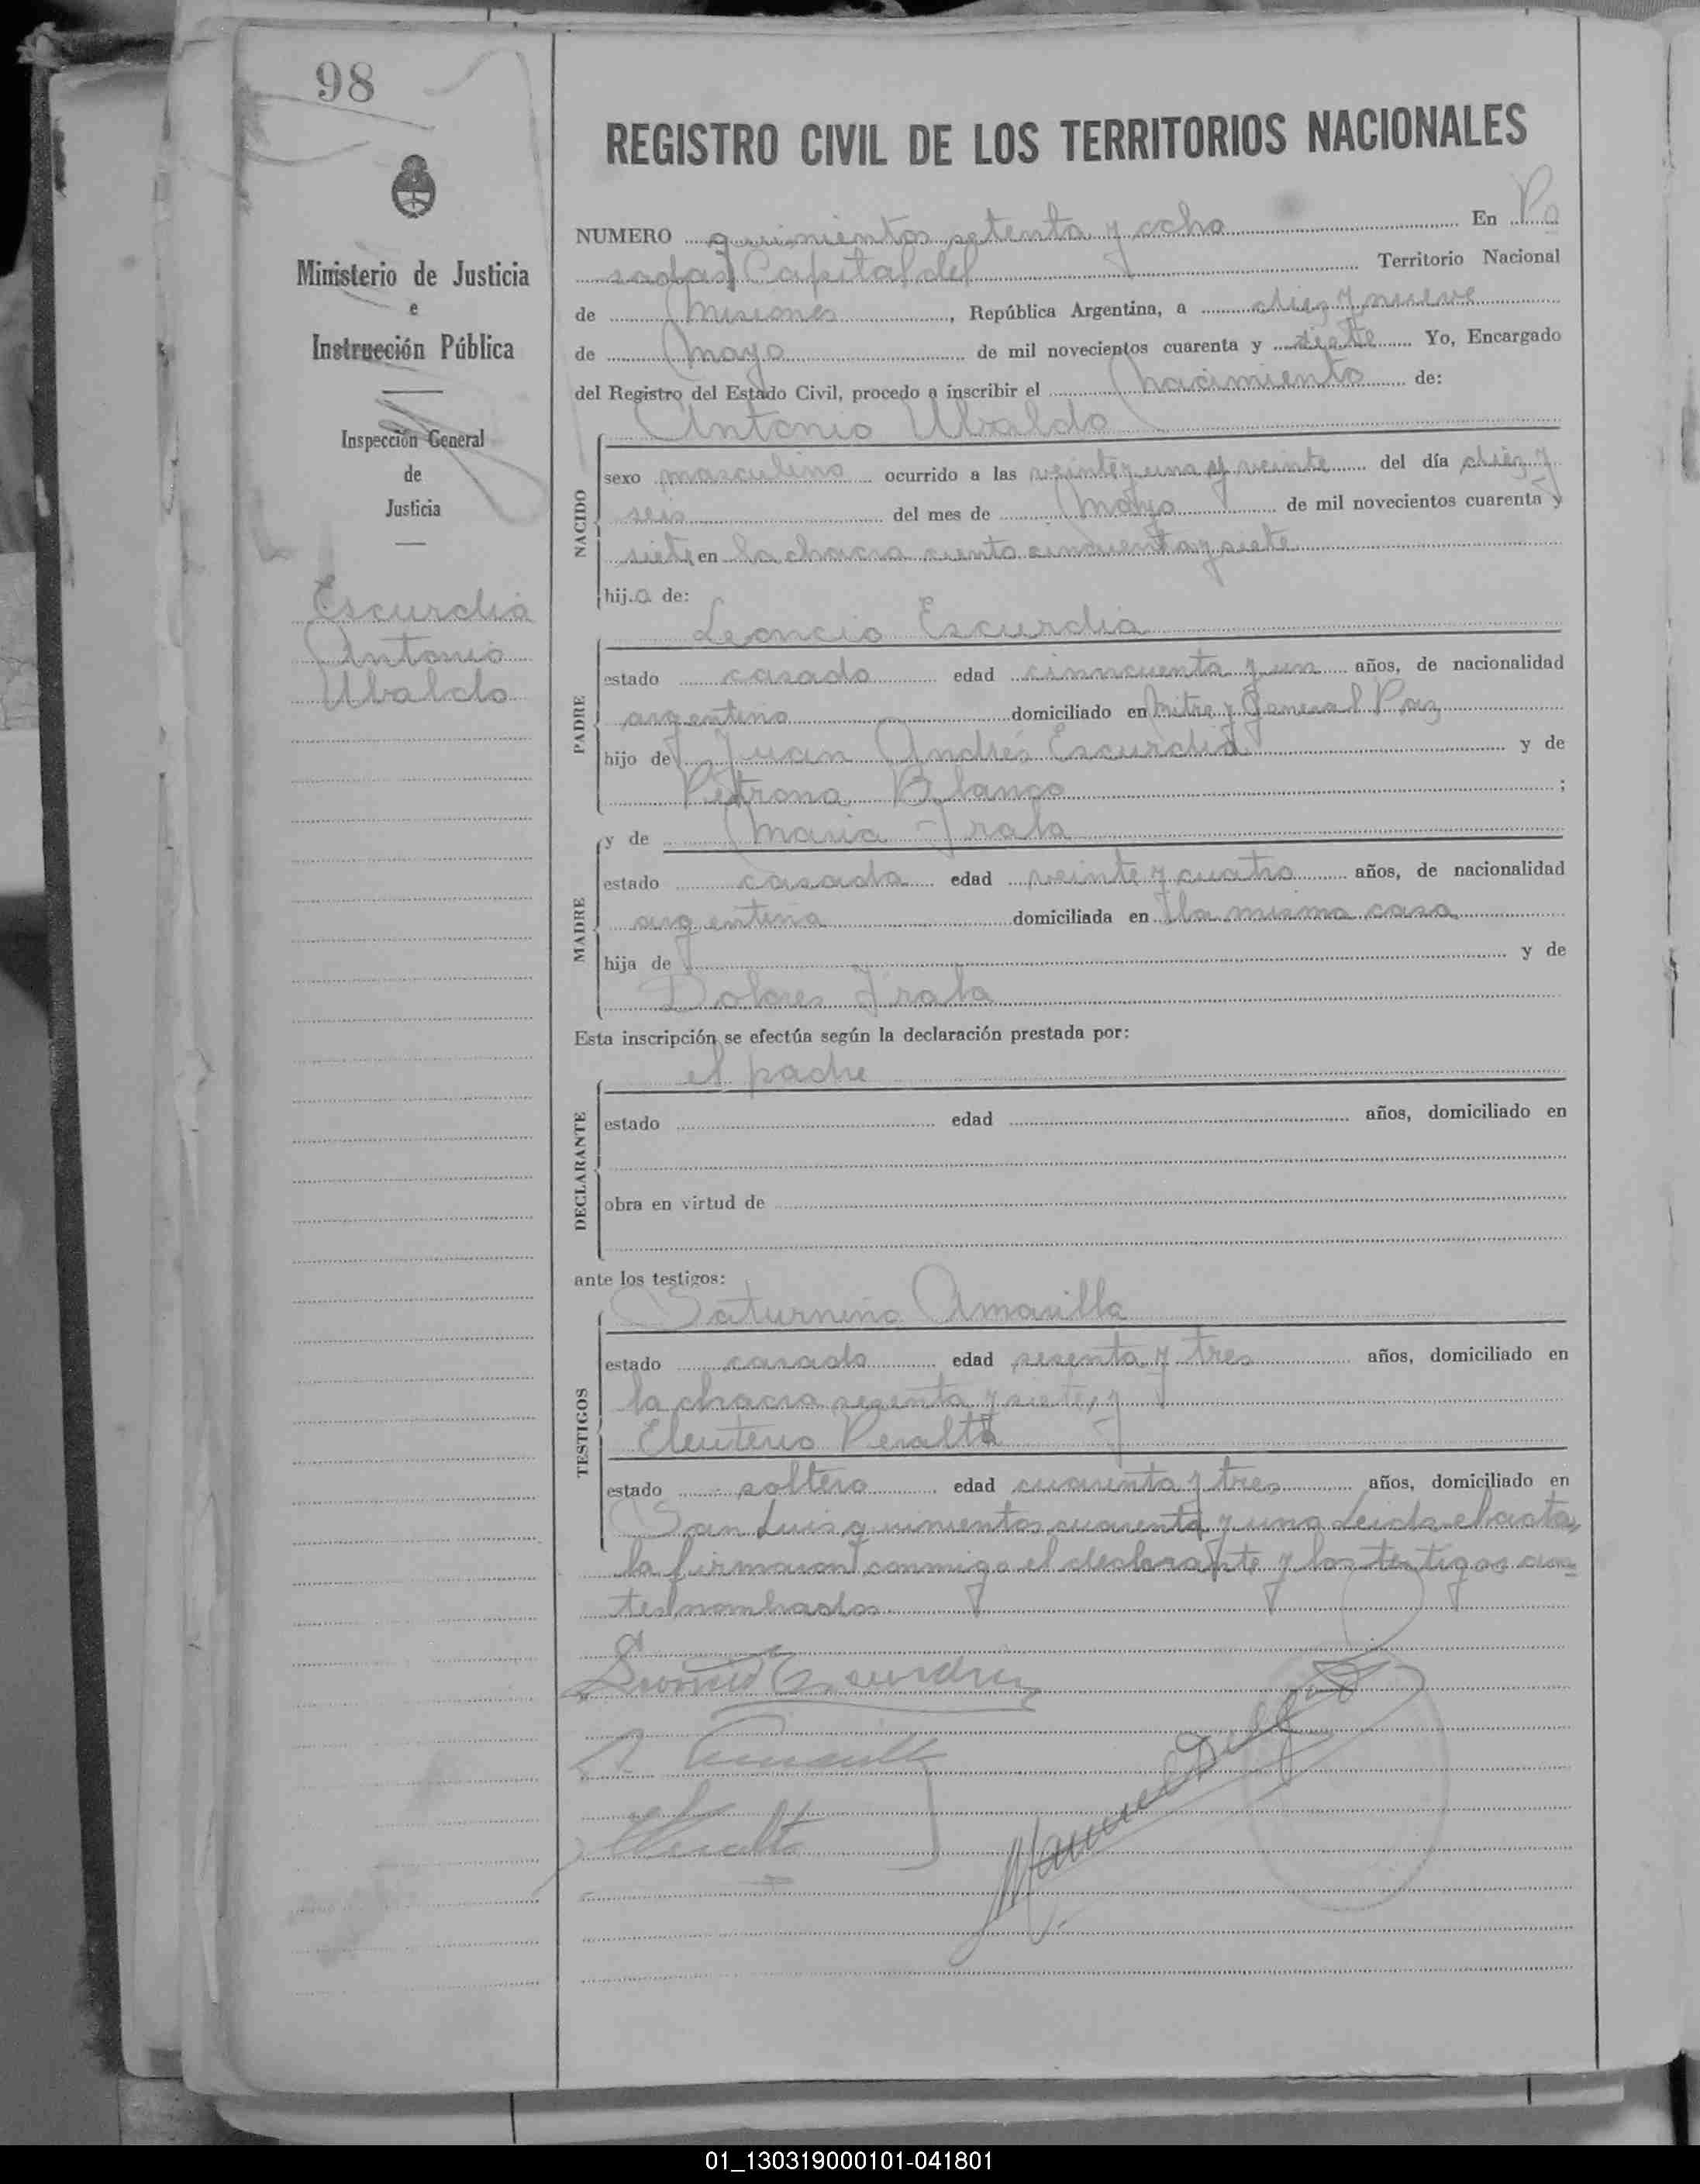 98
REGISTRO CIVIL DE LOS TERRITORIOS NACIONALES
Ministerio de Justicia
e
Instrucción Pública
Inspección General
de
Justicia
Escurdia
Antonio
Ubaldo
NUMERO quinientos setenta y ocho En Po
sadas Capital del Territorio Nacional
de Misiones, República Argentina, a diez y nueve
de Mayo de mil novecientos cuarenta y siete Yo, Encargado
del Registro del Estado Civil, procedo a inscribir el nacimiento de:
Antonio Ubaldo
NACIDO
sexo masculino ocurrido a las veinte y una y veinte del día diez y
seis del mes de Mayo de mil novecientos cuarenta y
siete en la chacra ciento cincuenta y siete
hijo de:
Leoncio Escurdia
PADRE
estado casado edad cinncuenta y un años, de nacionalidad
argentino domiciliado en Mitre y General Paz
hijo de Juan Andrés Escurdia y de
Petrona Blanco ;
y de Maria Irala
MADRE
estado casada edad veinte y cuatro años, de nacionalidad
argentina domiciliada en la misma casa
hija de y de
Dolores Irala
Esta inscripción se efectúa según la declaración prestada por:
el padre
DECLARANTE
estado edad años, domiciliado en
obra en virtud de
ante los testigos:
Saturnino Amarilla
TESTIGOS
estado casado edad sesenta y tres años, domiciliado en
la chacra sesenta y siete, y
Eleuterio Peralta
estado soltero edad cuarenta y tres años, domiciliado en
San Luis quinientos cuarenta y uno Leida el acta,
la firmaron conmigo el declarante y los testigos an=
tes nombrados
Leoncio Escurdia
S. Amarilla
Peralta
Manuel
01_130319000101-041801